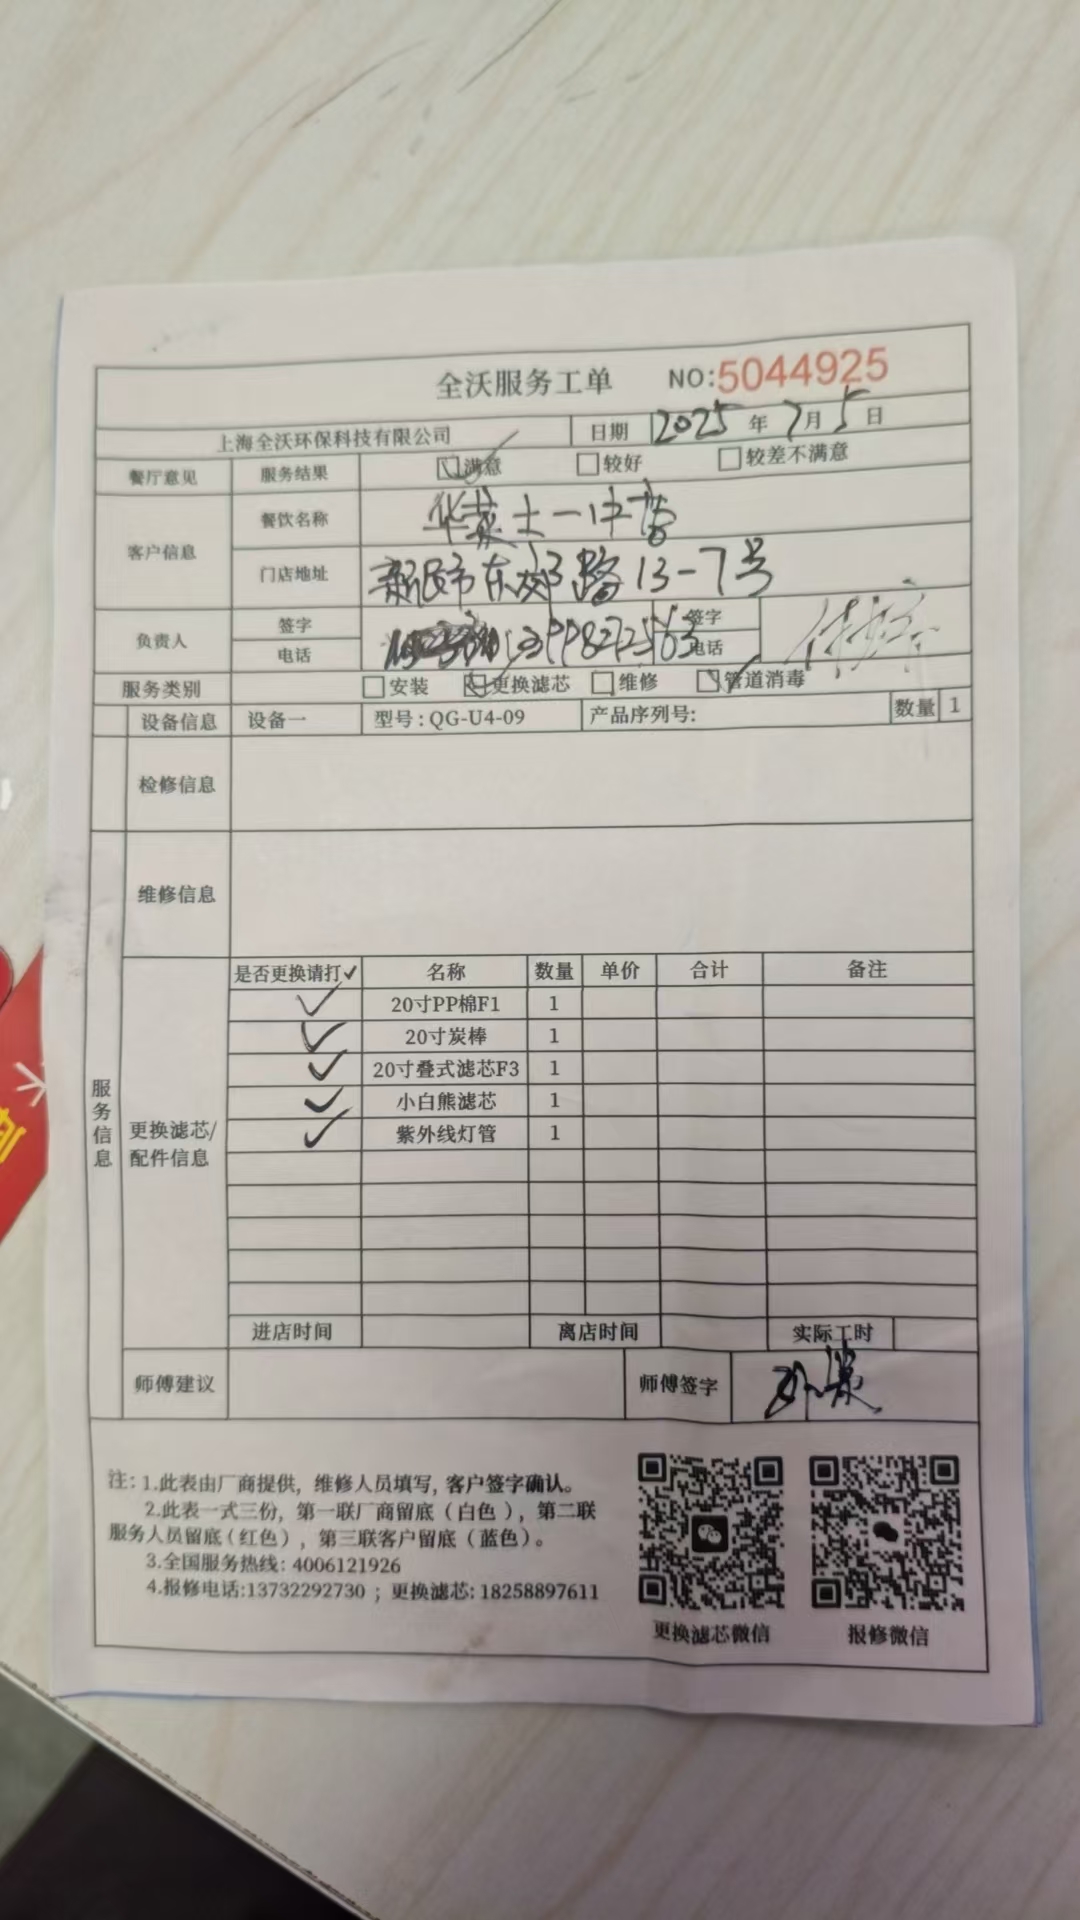 全沃服务工单 NO:5044925
上海全沃环保科技有限公司 日期 2025年7月5日
餐厅意见 服务结果 满意 较好 较差不满意
客户信息 餐饮名称 华莱士一中店
门店地址 新民市东郊路13-7号
负责人 签字 签字
电话 电话
服务类别 安装 更换滤芯 维修 管道消毒
设备信息 设备一 型号:QG-U4-09 产品序列号: 数量 1
检修信息
维修信息
服务信息
更换滤芯/配件信息
是否更换请打✓ 名称 数量 单价 合计 备注
✓ 20寸PP棉F1 1
✓ 20寸炭棒 1
✓ 20寸叠式滤芯F3 1
✓ 小白熊滤芯 1
✓ 紫外线灯管 1
进店时间 离店时间 实际工时
师傅建议 师傅签字
注:1.此表由厂商提供，维修人员填写,客户签字确认。
2.此表一式三份，第一联厂商留底（白色），第二联
服务人员留底(红色），第三联客户留底（蓝色）。
3.全国服务热线: 4006121926
4.报修电话:13732292730 ; 更换滤芯: 18258897611
更换滤芯微信 报修微信